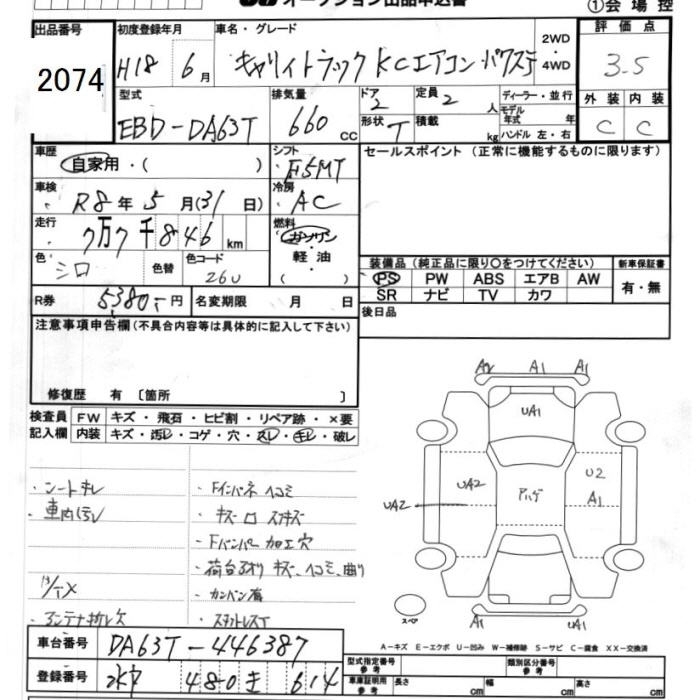 オークション出品申込書
①会場控
出品番号 初度登録年月 車名・グレード 2WD・4WD 評価点
2074 H18年 6月 キャリイトラック KCエアコン・パワステ 3.5
型式 排気量 ドア 2 定員 2人 ディーラー・並行 外装 内装
EBD-DA63T 660cc 形状 T 積載 kg モデル年式 年 ハンドル 左・右 C C
車歴 自家用・( ) シフト F5MT セールスポイント (正常に機能するものに限ります)
車検 R8年5月(31日) 冷房 AC
走行 7万7千846km 燃料 ガソリン・軽油・( )
色 シロ 色替 色コード 26U
装備品 (純正品に限り○をつけてください) 新車保証書
PS PW ABS エアB AW 有・無
SR ナビ TV カワ
R券 5380-円 名変期限 月 日
後日品
注意事項申告欄 (不具合内容等は具体的に記入して下さい)
修復歴 有 [箇所 ]
検査員記入欄 FW キズ・飛石・ヒビ割・リペア跡・×要
内装 キズ・汚レ・コゲ・穴・スレ・キレ・破レ
A2 A1 A1
UA1
・シートキレ ・Fインパネ ヘコミ
・車内汚レ ・キズ
UA2 UA2 アハゲ U2 A1
・Fバンパー加工穴
・荷台アオリ キズ、ヘコミ、曲り
・カンバン有
・アンテナ折レ欠 ・スタットレスT
スペア
UA1 UA1
A-キズ E-エクボ U-凹み W-補修跡 S-サビ C-腐食 XX-交換済
車台番号 DA63T-446387
登録番号 水戸 480 き 614
型式指定番号 参考 類別区分番号 参考
車庫証明用 参考 長さ cm 幅 cm 高さ cm